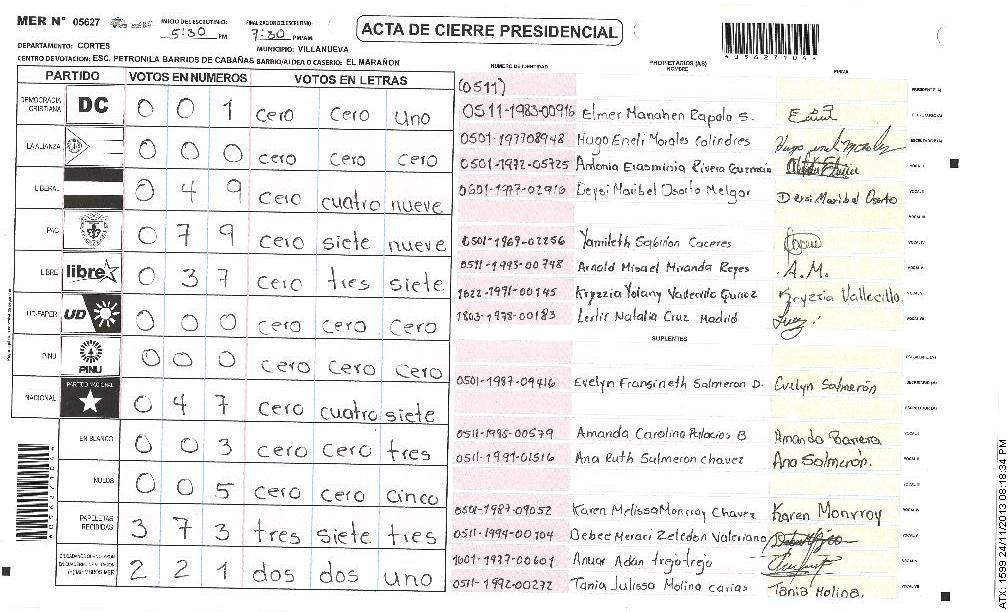 MER N° 05627
INICIO DEL ESCRUTINIO: 5:30 PM
FINALIZACION DEL ESCRUTINIO: 7:30 PM/AM
ACTA DE CIERRE PRESIDENCIAL
DEPARTAMENTO: CORTES
MUNICIPIO: VILLANUEVA
CENTRO DE VOTACION: ESC. PETRONILA BARRIOS DE CABAÑAS BARRIO/ALDEA O CASERIO: EL MARAÑON
PARTIDO VOTOS EN NUMEROS VOTOS EN LETRAS
DEMOCRACIA CRISTIANA DC 0 0 1 cero cero uno
LA ALIANZA 0 0 0 cero cero cero
LIBERAL 0 4 9 cero cuatro nueve
PAC 0 7 9 cero siete nueve
LIBRE libre 0 3 7 cero tres siete
UD-FAPER UD 0 0 0 cero cero cero
PINU PINU 0 0 0 cero cero cero
NACIONAL PARTIDO NACIONAL 0 4 7 cero cuatro siete
EN BLANCO 0 0 3 cero cero tres
NULOS 0 0 5 cero cero cinco
PAPELETAS RECIBIDAS 3 7 3 tres siete tres
2 2 1 dos dos uno
NUMERO DE IDENTIDAD PROPIETARIOS (AS) NOMBRE FIRMA
(0511)
0511-1983-00916 Elmer Manahen Capolo S.
0501-197708948 Hugo Eneli Morales Colindres
0501-1972-05725 Antonia Erasminia Rivera Guzmán
0601-1977-02916 Deysi Maribel Osorto Melgar Deysi Maribel Osorto
0501-1969-02256 Yamileth Sabillon Caceres
0511-1995-00748 Arnold Misael Miranda Reyes A.M.
1622-1991-00145 Kryzzia Yolany Vallecillo Kryzzia Vallecillo.
1803-1978-00183 Leslir Natalia Cruz Madrid
SUPLENTES
0501-1987-09416 Evelyn Fransineth Salmeron D. Evelyn Salmerón
0511-1995-00579 Amanda Carolina Pallacios B Amanda Barrera
0511-1991-01516 Ana Ruth Salmeron chavez Ana Salmerón.
0501-1987-09052 Karen Melissa Monrroy Chavez Karen Monrroy
0511-1994-00104 Debee Merari Zeledon Valeriano
1601-1977-00601 Anuar Adan trejo trejo
0511-1992-00272 Tania Julissa Molina carias Tania Molina.
ATX: 1599 24/11/2013 08:18:34 PM